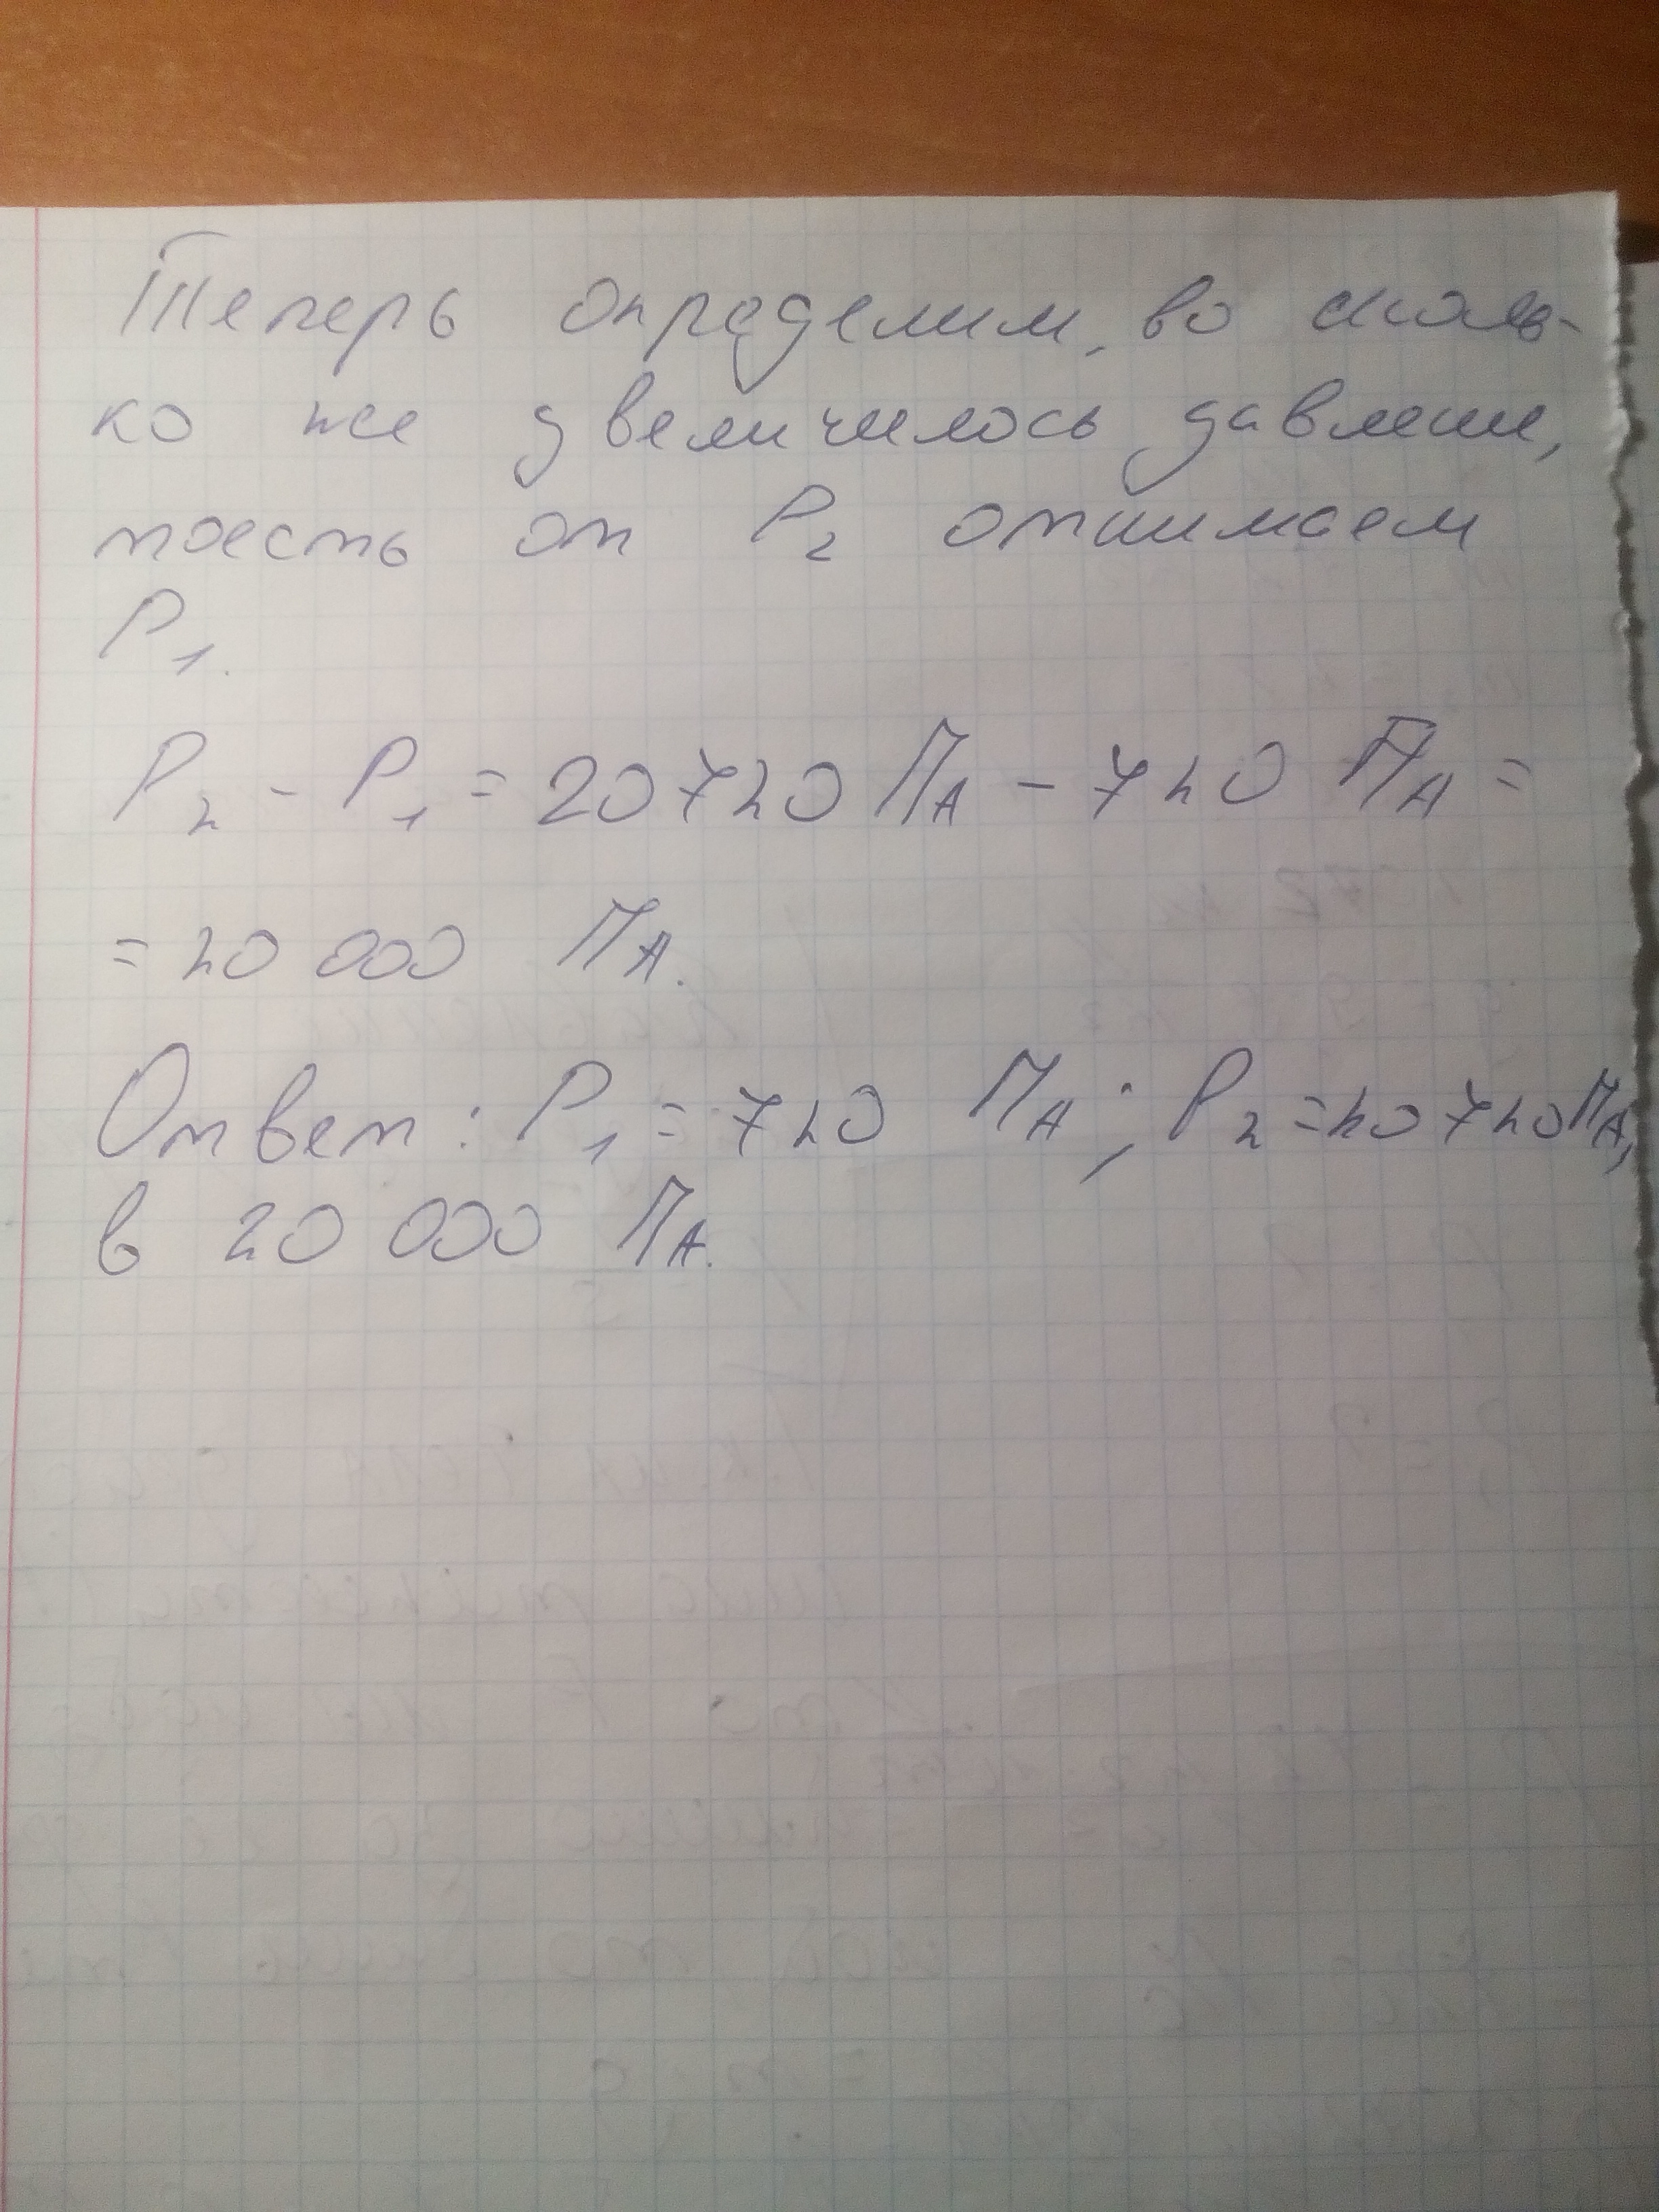 Теперь определим, во сколь-
ко же увеличилось давлени,
тоесть от P₂ отнимаем
P₁.
P₂ - P₁ = 20720 ПА - 720 ПА =
= 20 000 ПА.
Ответ: P₁ = 720 ПА; P₂ = 20720 ПА,
в 20 000 ПА.